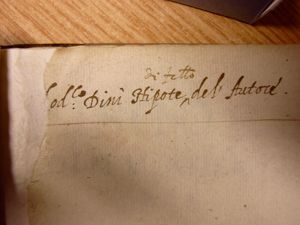 di fetto
Lod.co Dini Nipote del Autore.